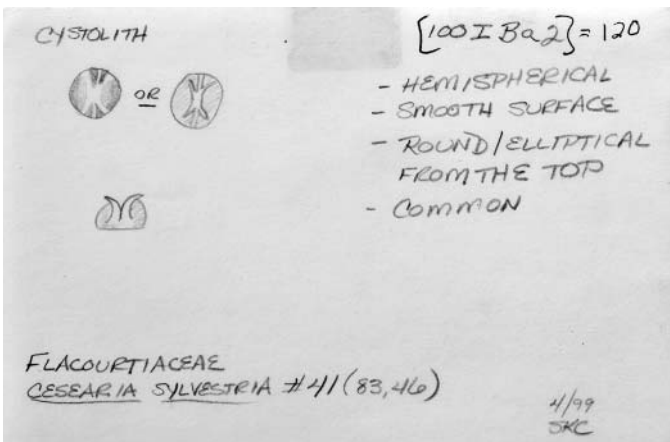 CYSTOLITH
[100 I Ba2] = 120
OR
- HEMISPHERICAL
- SMOOTH SURFACE
- ROUND/ELLIPTICAL
FROM THE TOP
- COMMON
FLACOURTIACEAE
CESEARIA SYLVESTRIA #41 (83,46)
4/99
SKC